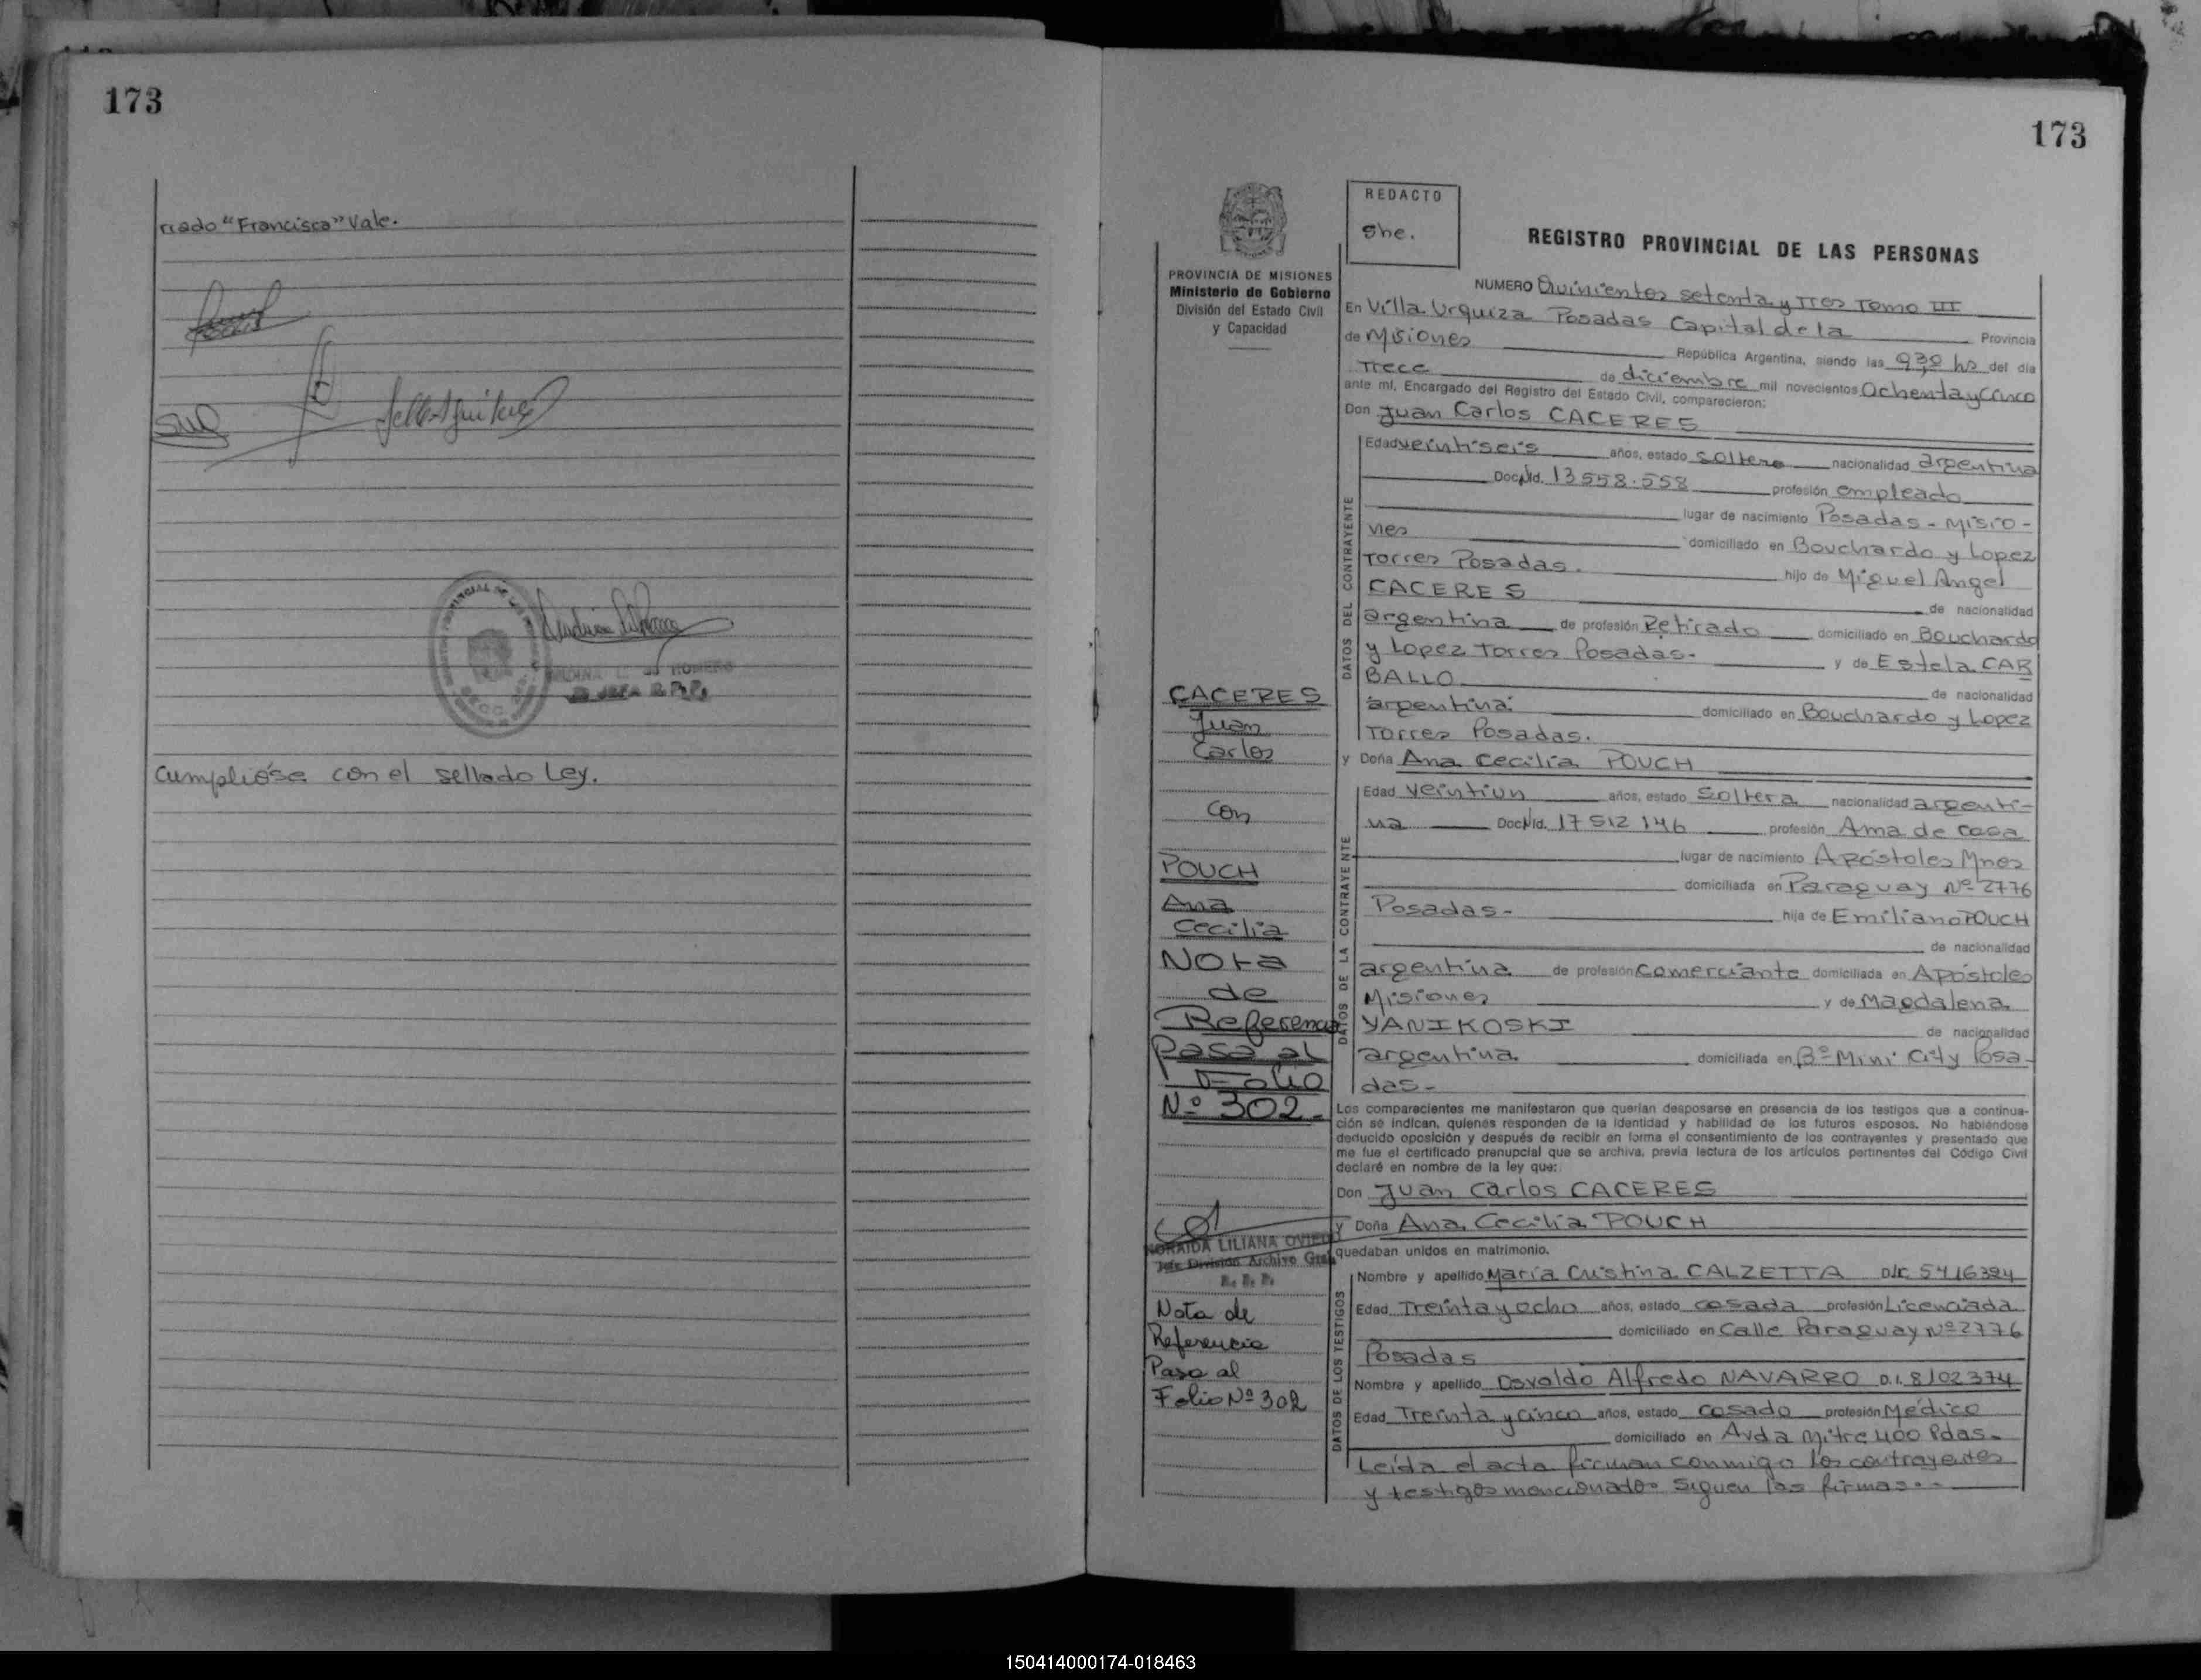 173
riado "Francisca" Vale.
Cumplióse con el sellado Ley.
173
REDACTO
She.
PROVINCIA DE MISIONES
Ministerio de Gobierno
División del Estado Civil
y Capacidad
REGISTRO PROVINCIAL DE LAS PERSONAS
NUMERO Quinientos setenta y Tres Tomo III
En Villa Urquiza Posadas Capital de la Provincia
de Misiones República Argentina, siendo las 9,30 hs del día
Trece de diciembre mil novecientos Ochenta y Cinco
ante mí, Encargado del Registro del Estado Civil, comparecieron:
Don Juan Carlos CACERES
DATOS DEL CONTRAYENTE
Edad veintiseis años, estado soltero nacionalidad argentina
Doc. Nid. 13558.558 profesión empleado
lugar de nacimiento Posadas - Misio-
nes domiciliado en Bouchardo y Lopez
Torres Posadas. hijo de Miguel Angel
CACERES de nacionalidad
argentina de profesión Retirado domiciliado en Bouchardo
y Lopez Torres Posadas- y de Estela CAR
BALLO de nacionalidad
argentina: domiciliado en Bouchardo y Lopez
Torres Posadas.
y Doña Ana Cecilia POUCH
DATOS DE LA CONTRAYENTE
Edad Veintiun años, estado Soltera nacionalidad argenti-
na Doc. Nid. 17512146 profesión Ama de casa
lugar de nacimiento Apóstoles Mnes
domiciliada en Paraguay Nº 2776
Posadas- hija de Emiliano POUCH
de nacionalidad
argentina de profesión Comerciante domiciliada en Apóstoles
Misiones y de Magdalena
YANIKOSKI de nacionalidad
argentina domiciliada en Bº Mini City Posa-
das-
Los comparecientes me manifestaron que querían desposarse en presencia de los testigos que a continua-
ción se indican, quienes responden de la identidad y habilidad de los futuros esposos. No habiéndose
deducido oposición y después de recibir en forma el consentimiento de los contrayentes y presentado que
me fue el certificado prenupcial que se archiva, previa lectura de los artículos pertinentes del Código Civil
declaré en nombre de la ley que:
Don Juan Carlos CACERES
y Doña Ana Cecilia POUCH
quedaban unidos en matrimonio.
DATOS DE LOS TESTIGOS
Nombre y apellido María Cristina CALZETTA D.I.C. 5416384
Edad Treinta y ocho años, estado casada profesión Licenciada
domiciliado en Calle Paraguay Nº 2776
Posadas
Nombre y apellido Osvaldo Alfredo NAVARRO D.I. 8102374
Edad Treinta y cinco años, estado casado profesión Médico
domiciliado en Avda Mitre 400 Pdas-
Leída el acta firman conmigo los contrayentes
y testigos mencionados Siguen las firmas.-
CACERES
Juan
Carlos
con
POUCH
Ana
Cecilia
Nota
de
Referencia
Pasa al
Folio
Nº 302-
NORAIDA LILIANA OVIEDO
Jefe División Archivo Gral
R. P. P.
Nota de
Referencia
Pasa al
Folio Nº 302
150414000174-018463